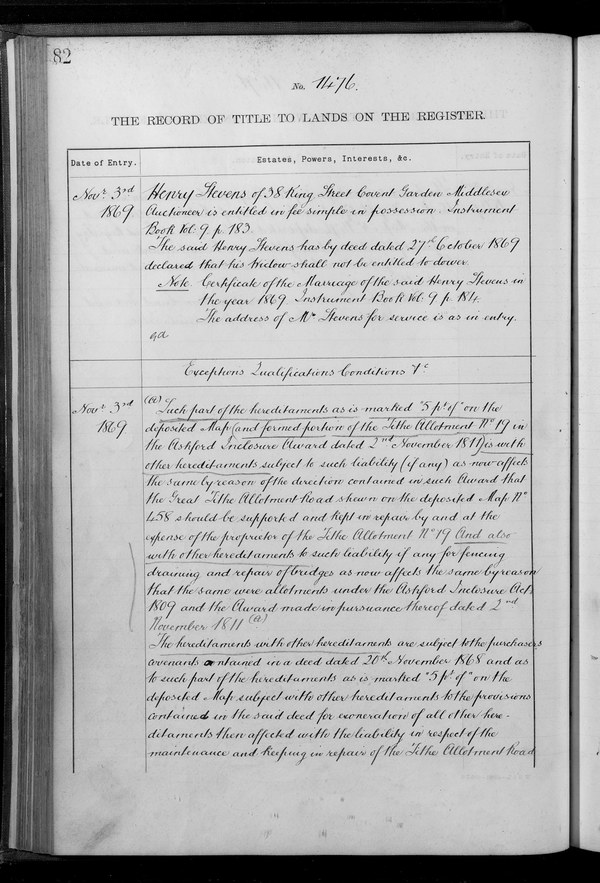 82
No. 1476.
THE RECORD OF TITLE TO LANDS ON THE REGISTER.
Date of Entry.
Estates, Powers, Interests, &c.
Novr 3rd
1869
Henry Stevens of 38 King Street Covent Garden Middlesex
Auctioneer is entitled in fee simple in possession. Instrument
Book Vol: 9. p. 183.
The said Henry Stevens has by deed dated 27th October 1869
declared that his widow shall not be entitled to dower.
Note. Certificate of the Marriage of the said Henry Stevens in
the year 1869. Instrument Book Vol: 9 p. 184.
The address of Mr Stevens for service is as in entry.
Exceptions Qualifications Conditions &c
Novr 3rd
1869
(a) Such part of the hereditaments as is marked "5 pt of" on the
deposited Map (and formed portion of the Tithe Allotment No 19 in
the Ashford Inclosure Award dated 2nd November 1811) is with
other hereditaments subject to such liability (if any) as now affects
the same by reason of the direction contained in such Award that
the Great Tithe Allotment Road shewn on the deposited Map No
458 should be supported and kept in repair by and at the
expense of the proprietor of the Tithe Allotment No 19 And also
with other hereditaments to such liability if any for fencing
draining and repair of bridges as now affects the same by reason
that the same were allotments under the Ashford Inclosure Act
1809 and the Award made in pursuance thereof dated 2nd
November 1811 (a)
The hereditaments with other hereditaments are subject to the purchasers
covenants contained in a deed dated 20th November 1868 and as
to such part of the hereditaments as is marked "5 pt of" on the
deposited Map subject with other hereditaments to the provisions
contained in the said deed for exoneration of all other here-
ditaments then affected with the liability in respect of the
maintenance and keeping in repair of the Tithe Allotment Road